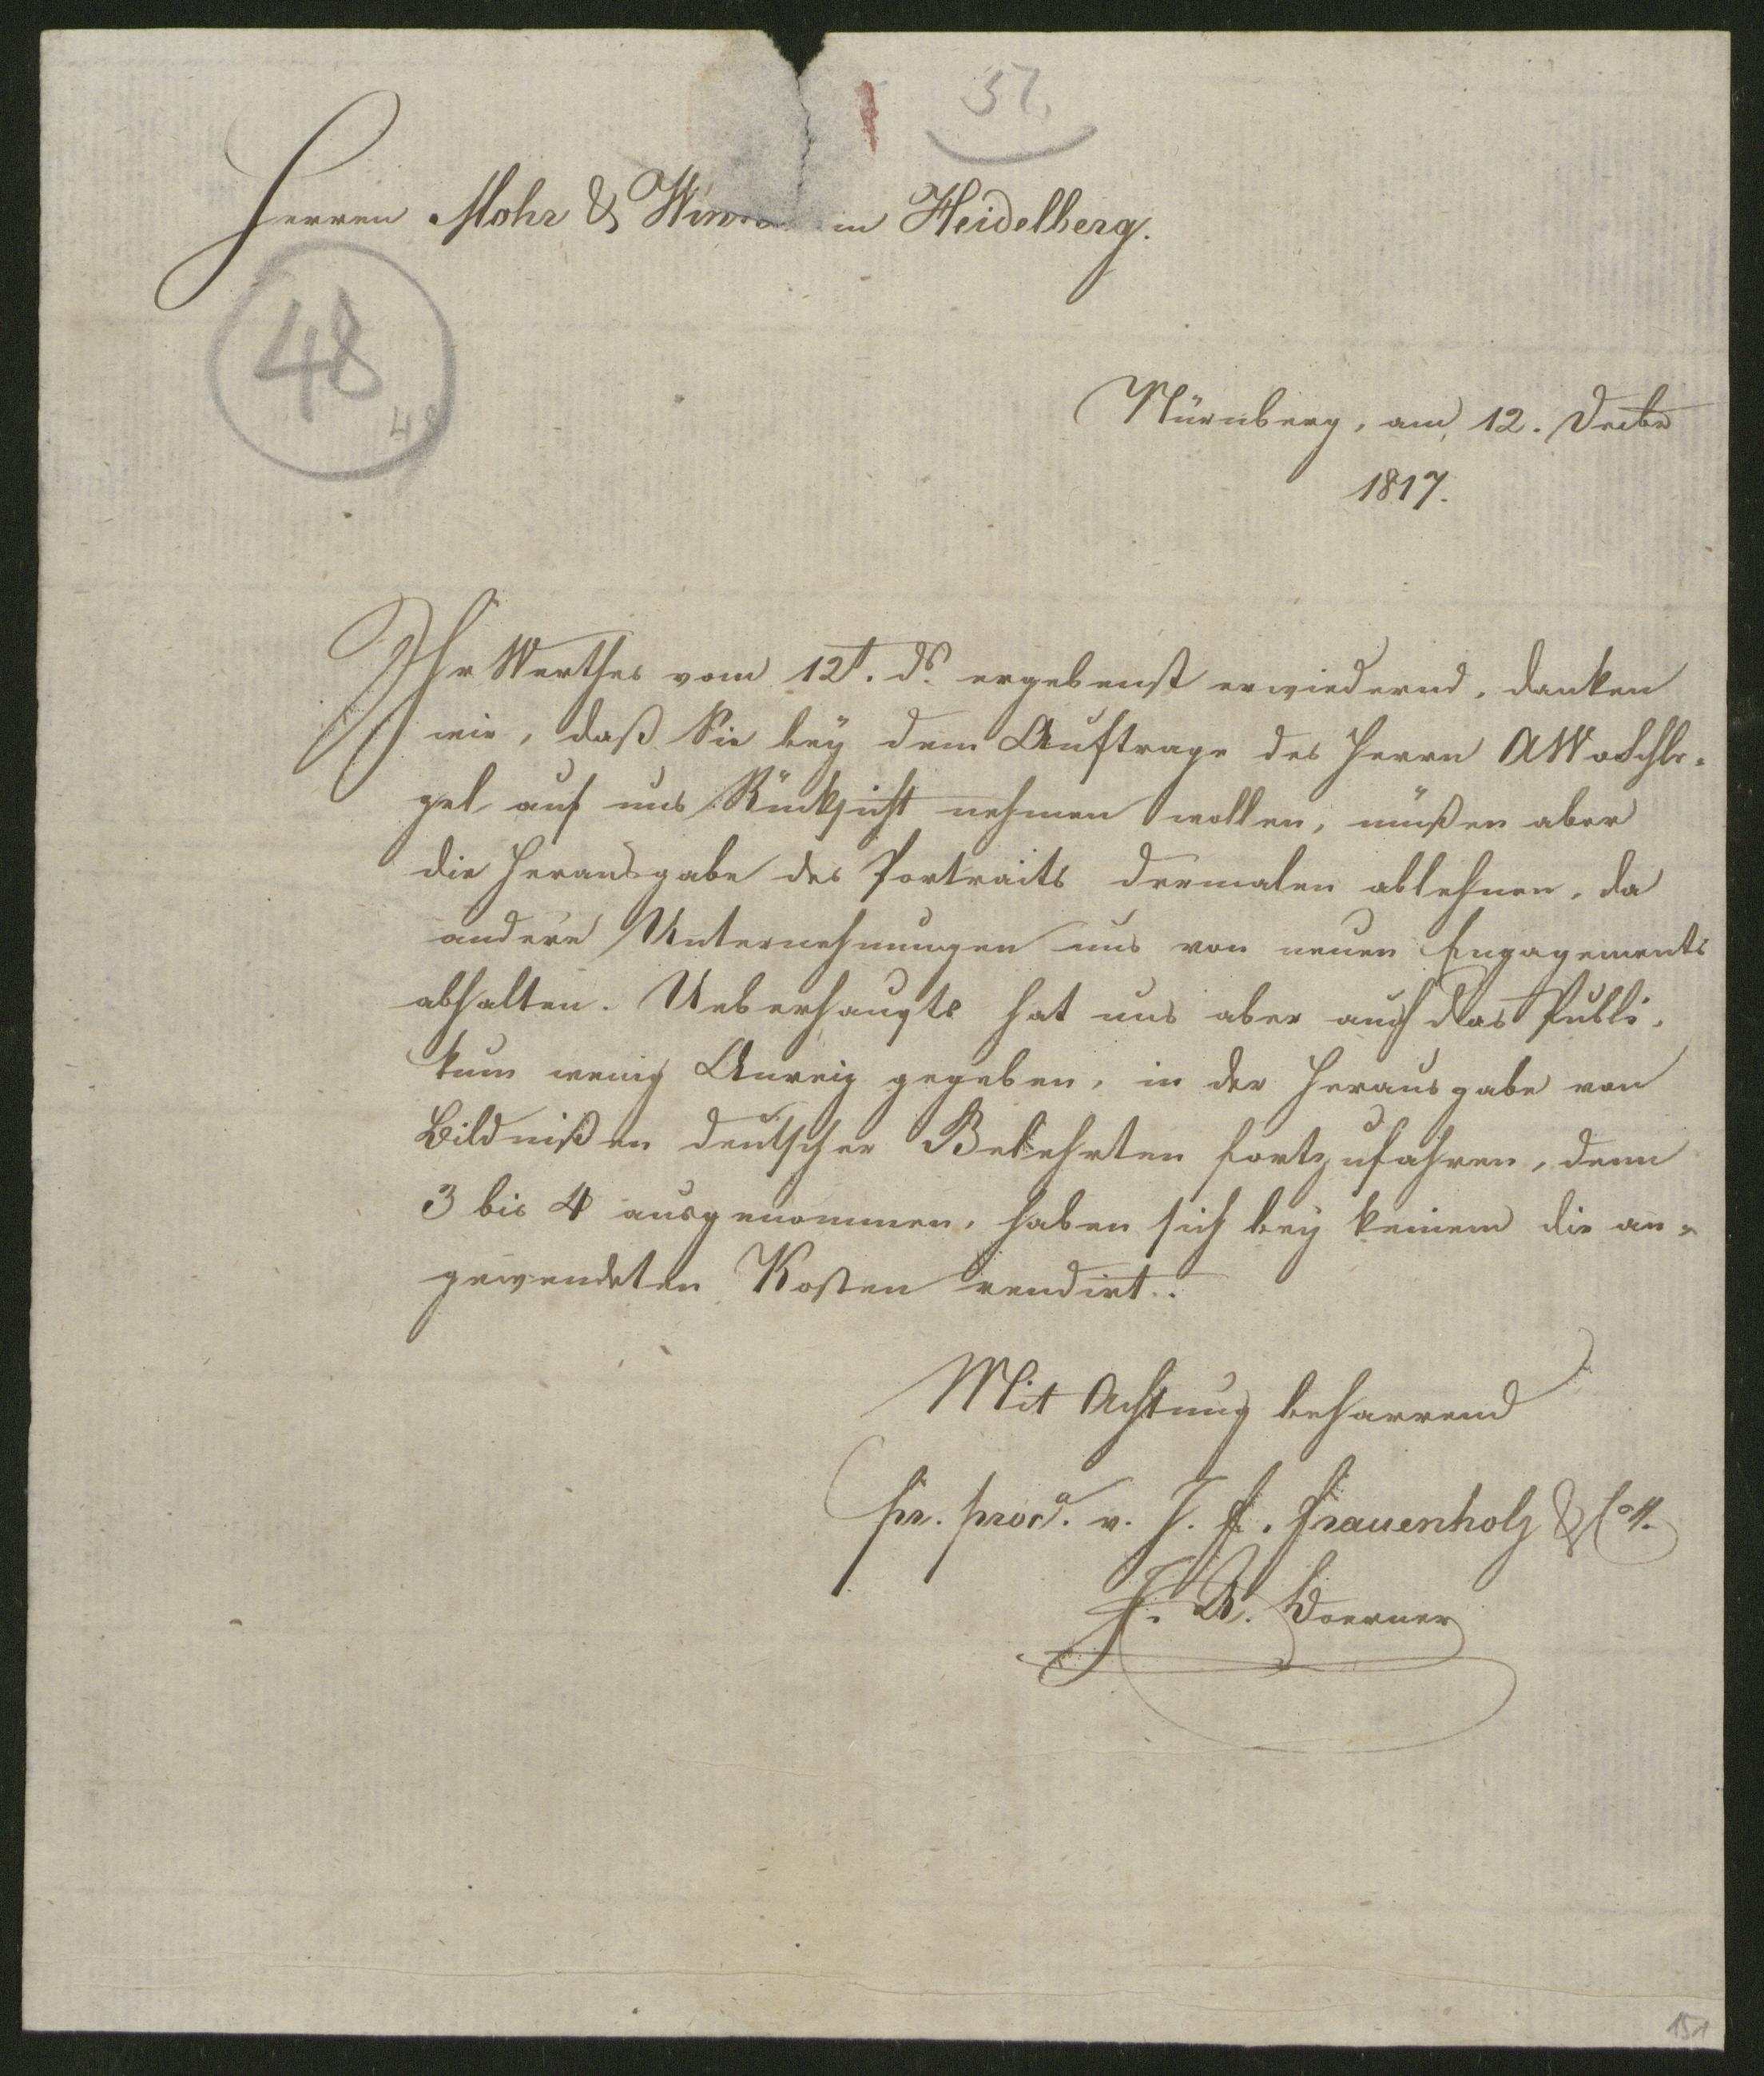 37.
Herren Mohr & Win in Heidelberg.
48
48
Nürnberg, am 12. Decbr
1817.
Ihr Werthes vom 12t. ds. ergebenst erwiedernd, danken
wir, daß Sie bey dem Auftrage des Herrn AWvSchle-
gel auf uns Rücksicht nehmen wollen, müßen aber
die Herausgabe des Portraits dermalen ablehnen, da
andere Unternehmungen uns von neuen Engagements
abhalten. Ueberhaupts hat uns aber auch das Publi-
kum wenig Anreiz gegeben, in der Herausgabe von
Bildnißen deutscher Gelehrten fortzufahren, denn
3 bis 4 ausgenommen, haben sich bey keinem die an-
gewendeten Kosten rendirt.
Mit Achtung beharrend
pr. proca. v. J. F. Frauenholz & Co.
J. A. Boerner
151